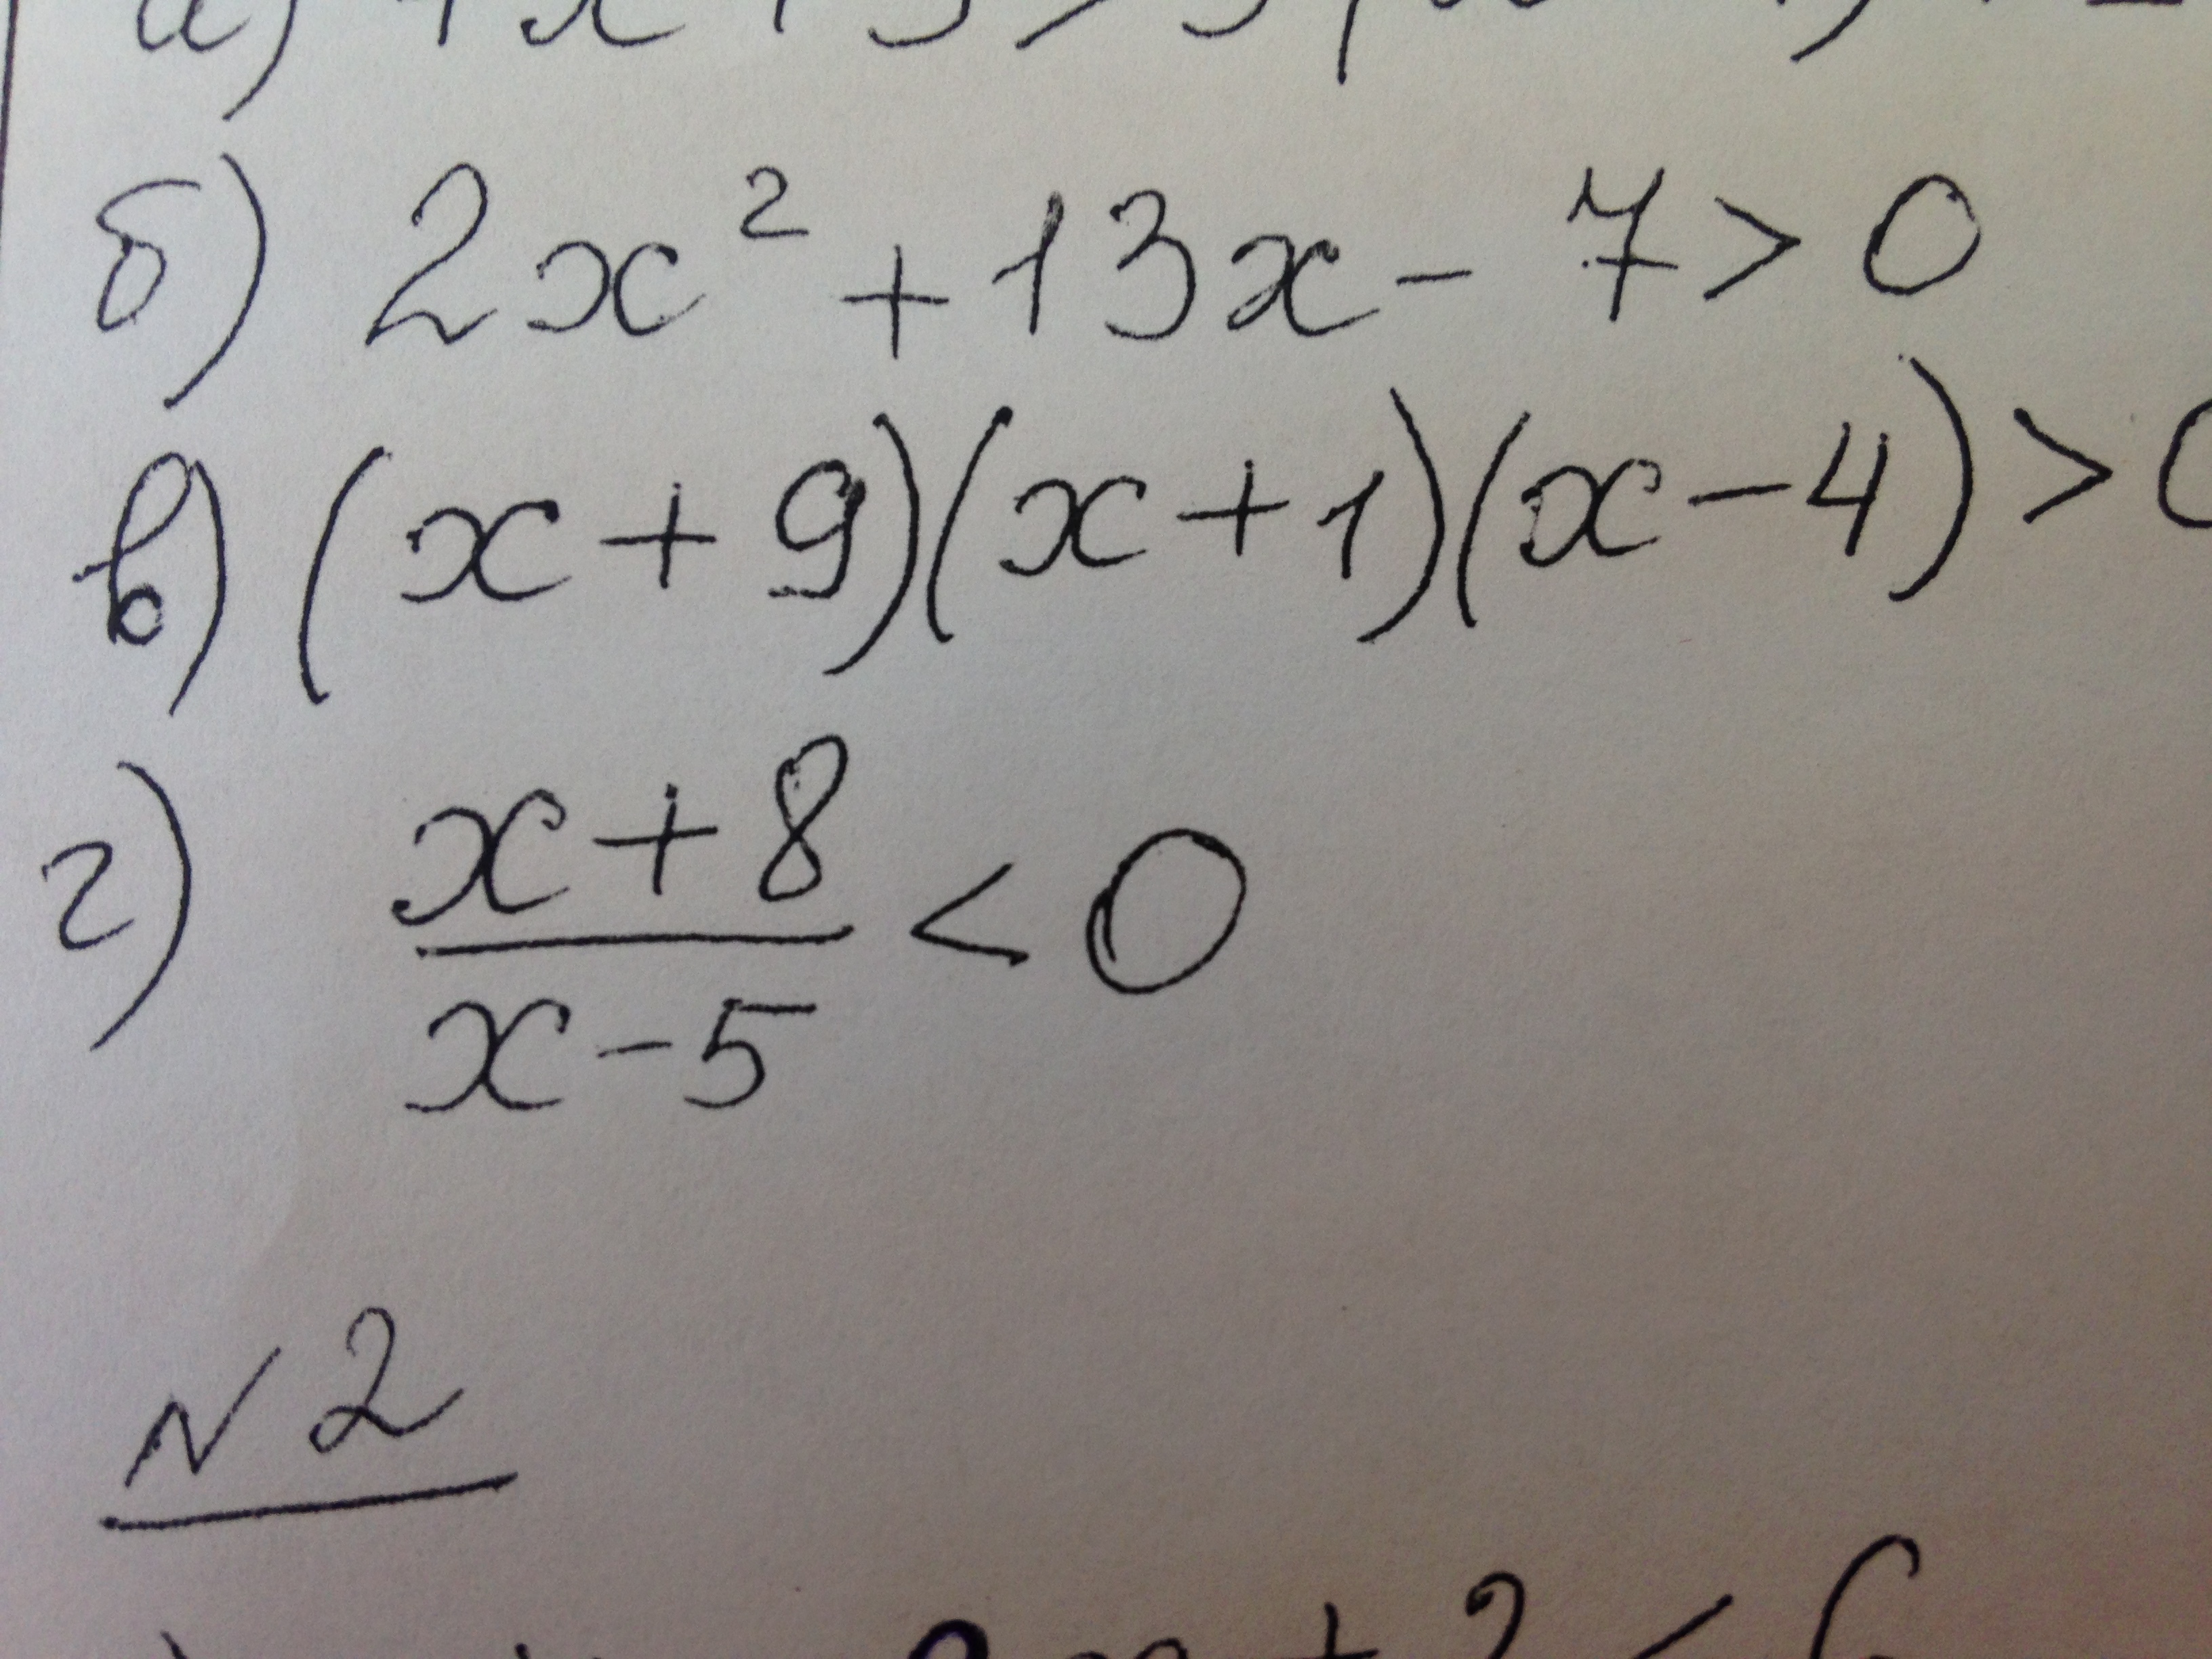 б) 2x² + 13x - 7 > 0
в) (x + 9)(x + 1)(x - 4) >
г) x + 8
< 0
x - 5
N 2